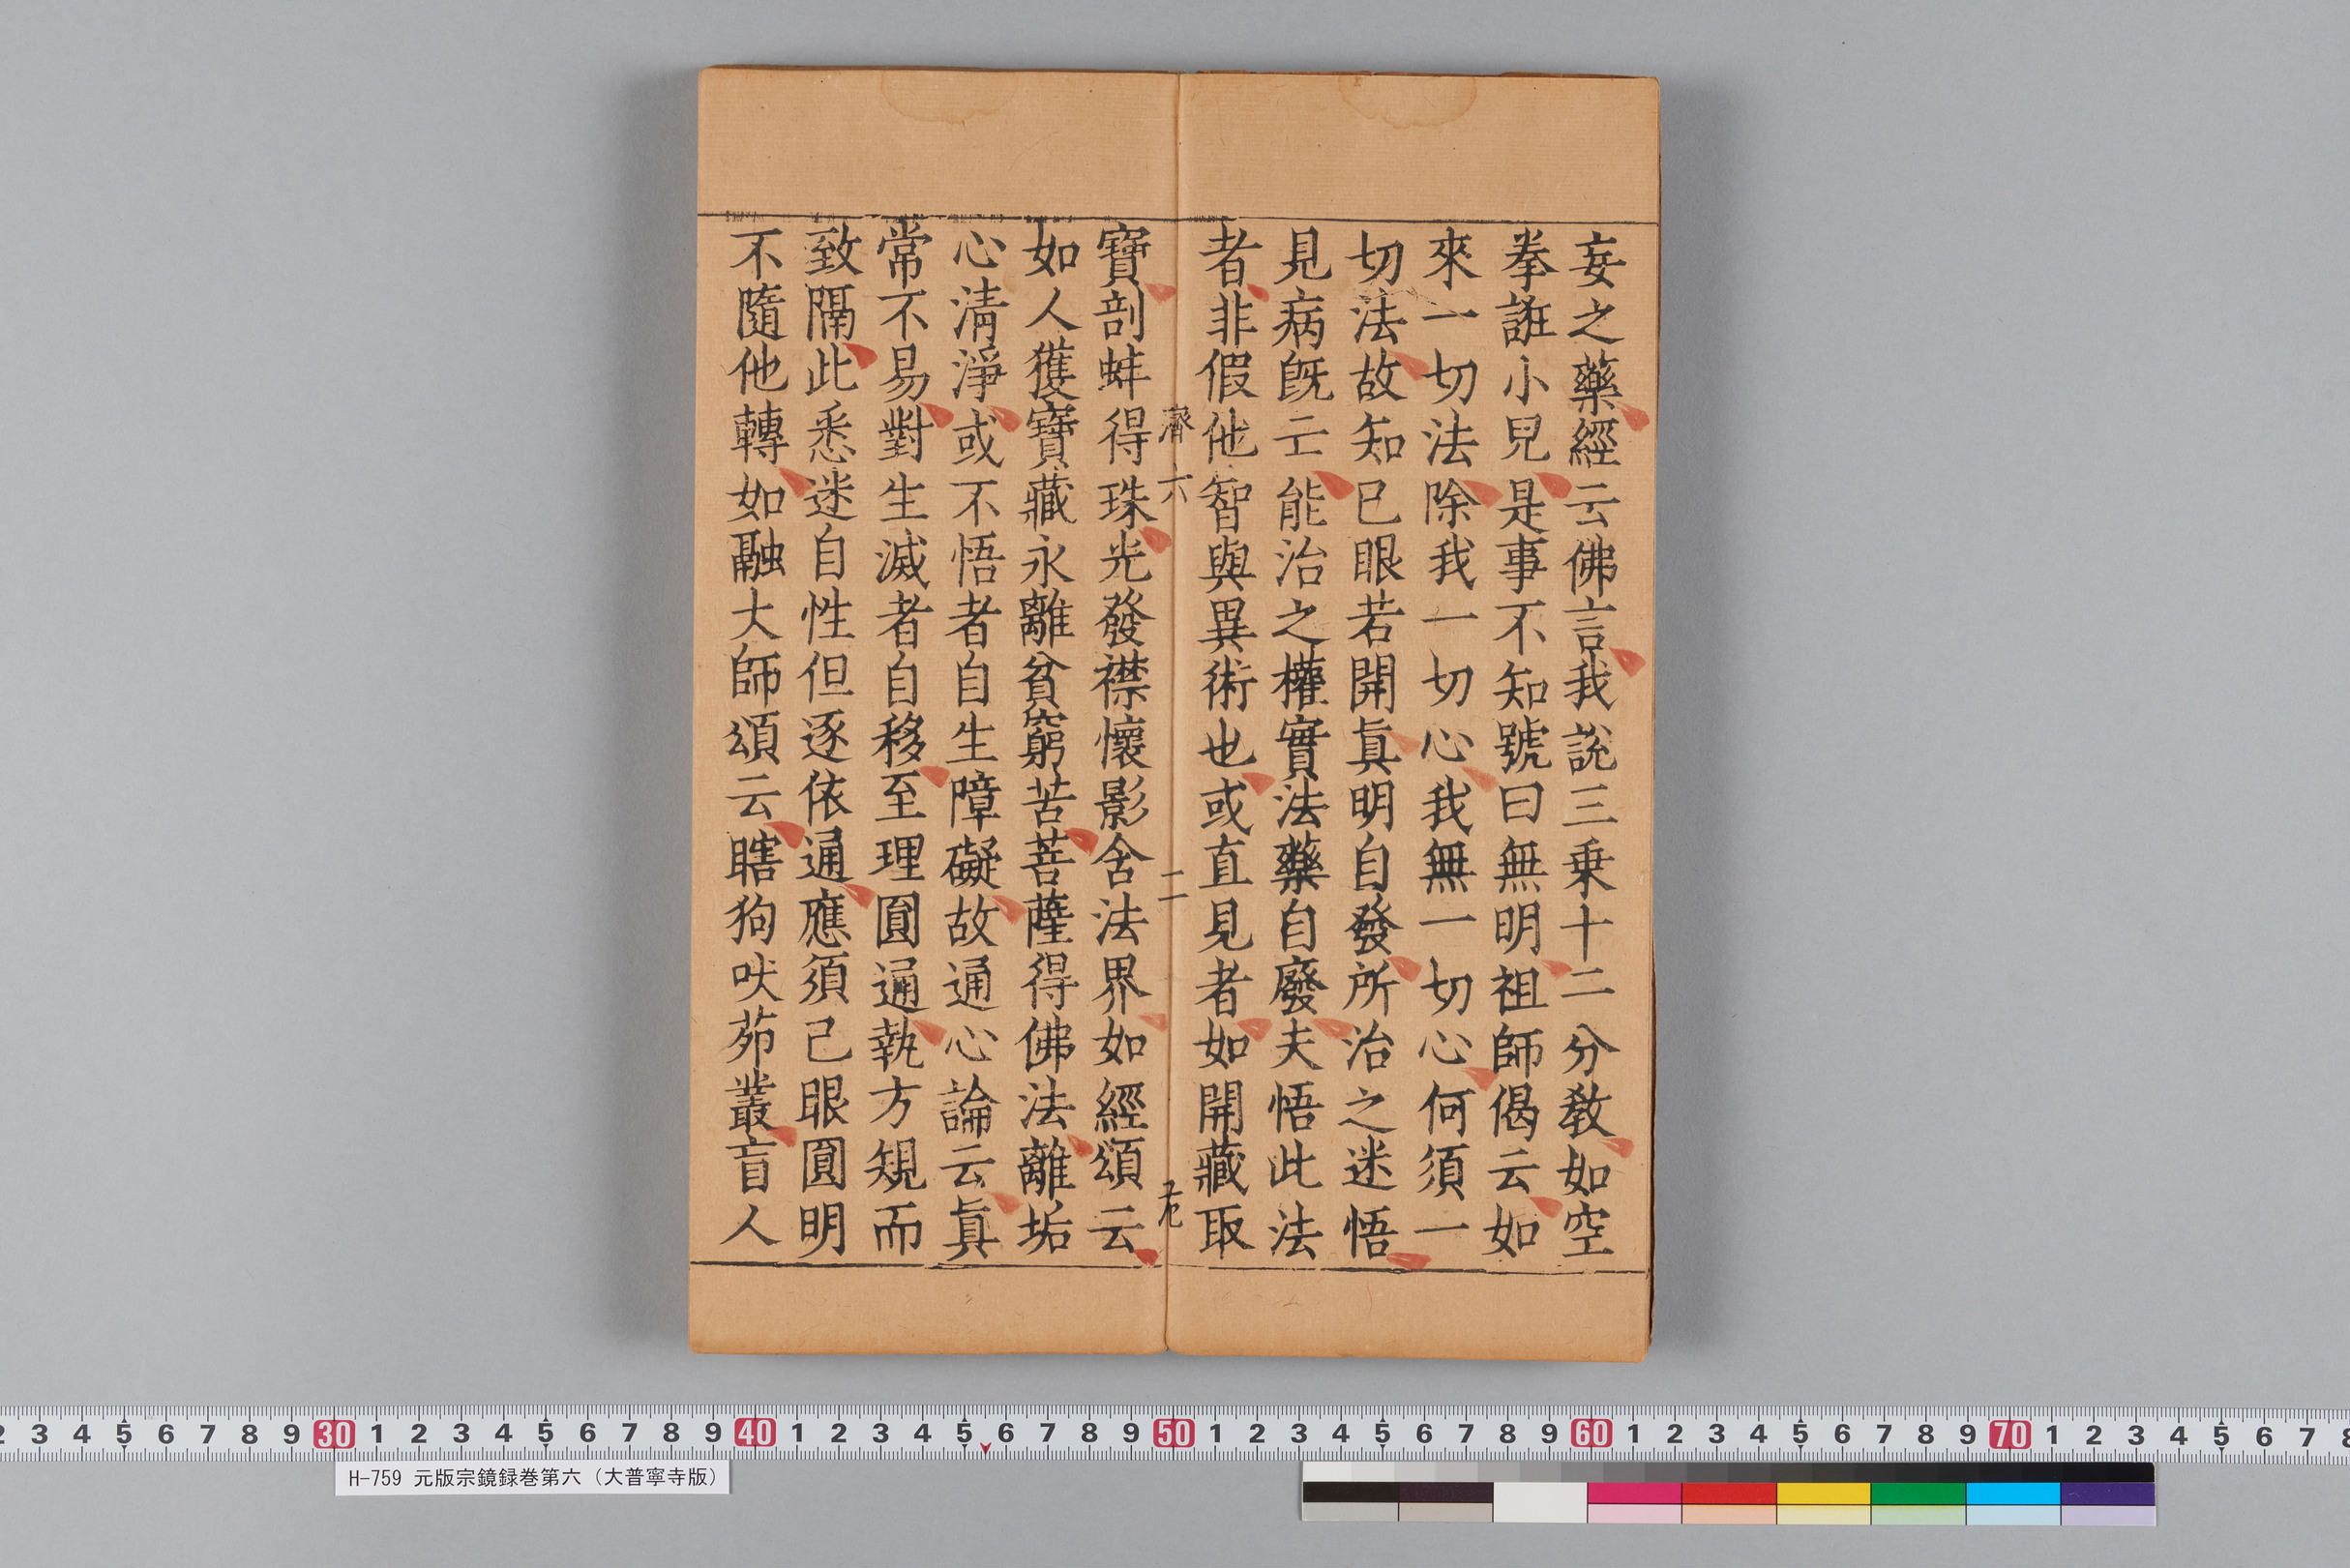 妄之藥經云佛言我說三乗十二分教如空
拳誑小兒是事不知號曰無明祖師偈云如
來一切法除我一切心我無一切心何須一
切法故知已眼若開眞明自發所治之迷悟
見病旣亡能治之權實法藥自廢夫悟此法
者非假他智與異術也或直見者如開藏取
濟 六 二
寶剖蚌得珠光發襟懷影含法界如經頌云
如人獲寶藏永離貧窮苦菩薩得佛法離垢
心清淨或不悟者自生障礙故通心論云眞
常不易對生滅者自移至理圓通執方規而
致隔此悉迷自性但逐依通應須己眼圓明
不隨他轉如融大師頌云瞎狗吠茆叢盲人
2 3 4 5 6 7 8 9 30 1 2 3 4 5 6 7 8 9 40 1 2 3 4 5 6 7 8 9 50 1 2 3 4 5 6 7 8 9 60 1 2 3 4 5 6 7 8 9 70 1 2 3 4 5 6 7 8
H-759 元版宗鏡録巻第六（大普寧寺版）